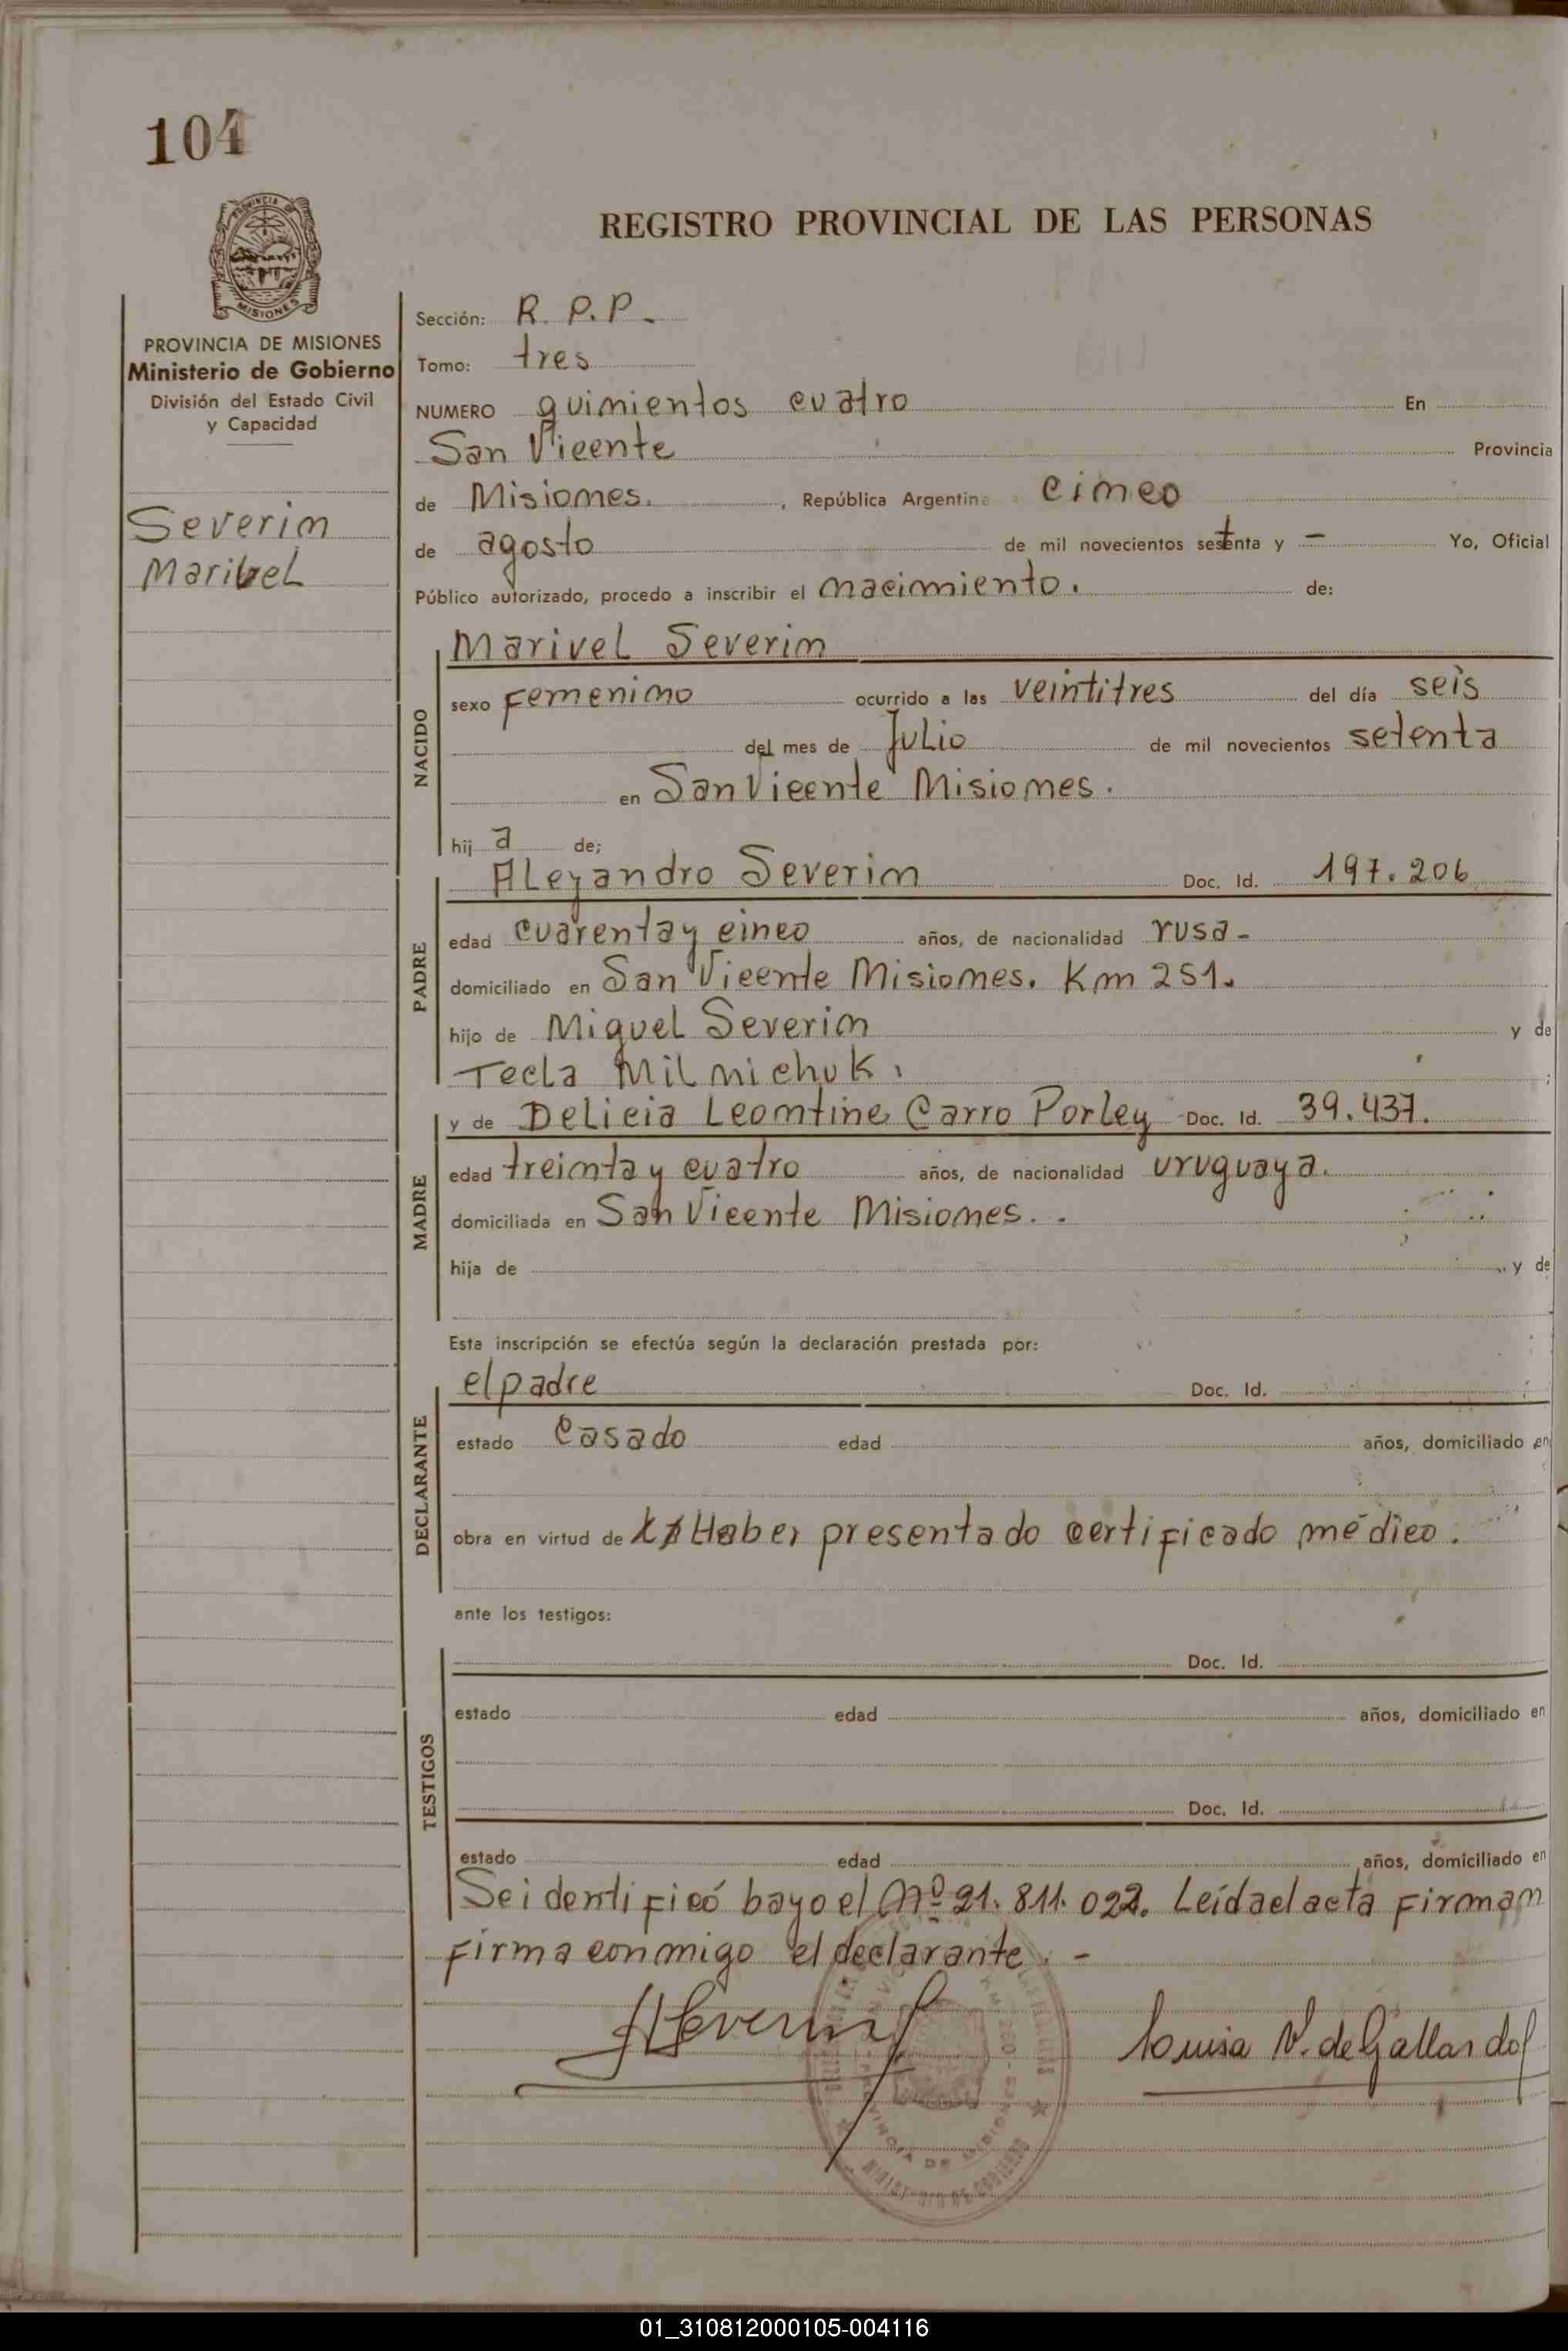 104
REGISTRO PROVINCIAL DE LAS PERSONAS
PROVINCIA DE MISIONES
Ministerio de Gobierno
División del Estado Civil
y Capacidad
Severin
Maribel
Sección: R. P. P.
Tomo: tres
NUMERO quinientos cuatro En
San Vicente Provincia
de Misiones. , República Argentina cinco
de agosto de mil novecientos setenta y — Yo, Oficial
Público autorizado, procedo a inscribir el nacimiento. de:
NACIDO
Marivel Severin
sexo Femenino ocurrido a las veintitres del día seis
del mes de Julio de mil novecientos setenta
en San Vicente Misiones.
hij a de;
PADRE
Aleyandro Severin Doc. Id. 197.206
edad cuarenta y cinco años, de nacionalidad rusa-
domiciliado en San Vicente Misiones. Km 251.
hijo de Miguel Severin y de
Tecla Milnichuk. ;
MADRE
y de Delicia Leontine Carro Porley Doc. Id. 39.437.
edad treinta y cuatro años, de nacionalidad uruguaya.
domiciliada en San Vicente Misiones.
hija de y de
Esta inscripción se efectúa según la declaración prestada por:
DECLARANTE
el padre Doc. Id.
estado Casado edad años, domiciliado en
obra en virtud de Haber presentado certificado médico.
ante los testigos:
TESTIGOS
Doc. Id.
estado edad años, domiciliado en
Doc. Id.
estado edad años, domiciliado en
Se identificó bayo el Nº 21.811.022. Leída el acta Firman
firma conmigo el declarante. -
ASeverin
Louisa N. de Gallardo
PROVINCIA DE MISIONES
MINISTERIO DE GOBIERNO
01_310812000105-004116